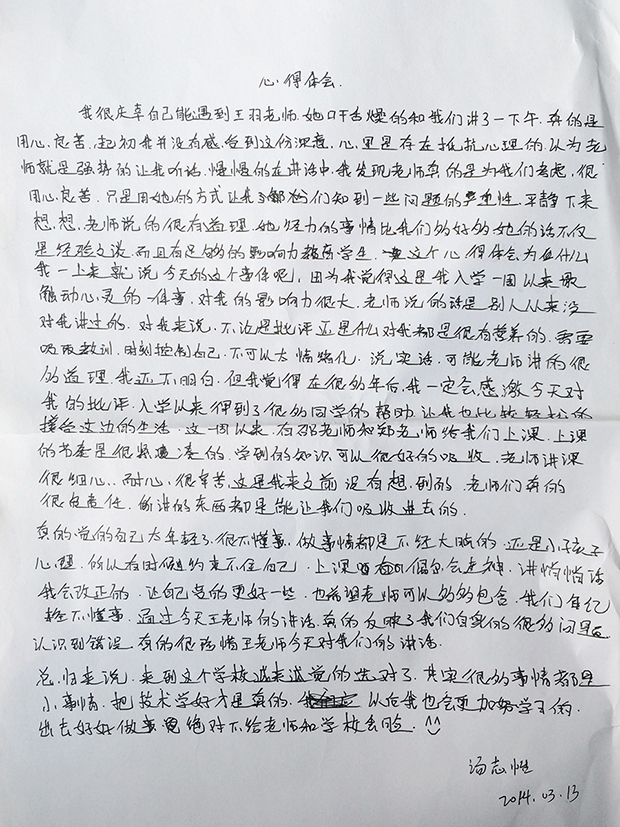 心得体会.
我很庆幸自己能遇到王羽老师.她口干舌燥的和我们讲了一下午.真的是
用心良苦.起初我并没有感受到这份深度,心里是存在抵抗心理的.认为老
师就是强势的让我听话.慢慢的在讲话中.我发现老师真的是为我们考虑,很
用心良苦.只是用她的方式让我们知到一些问题的严重性.平静下来
想,想,老师说的很有道理.她经力的事情比我们多的多的她的话不仅
是经验之谈.而且有足够的影响力教育学生.这个心得体会为在什么
我一上来就说今天的这个事件呢,因为我觉得这是我入学一周以来最
触动心灵的一件事.对我的影响力很大.老师说的话是别人从来没
对我讲过的.对我来说.不论是批评还是什么对我都是很有营养的.需要
吸取教训.时刻控制自己.不可以太情绪化.说实话.可能老师讲的很
多的道理.我还不明白.但我觉得在很多年后,我一定会感激今天对
我的批评.入学以来得到了很多同学的帮助.让我也比较轻松的
接受这边的生活.这一周以来.有邵老师和郑老师给我们上课.上课
的节奏是很紧凑的.学到的知识可以很好的吸收.老师讲课
很细心.耐心.很辛苦.这是我来之前没有想到的.老师们真的
很负责任.所讲的东西都是能让我们吸收进去的.
真的觉的自己太年轻了.很不懂事.做事情都是不经大脑的.还是小孩子
心理.所以有时候约束不住自己.上课偶尔会走神.讲悄悄话
我会改正的.让自己变的更好一些.也希望老师可以多多的包含.我们年纪
轻不懂事.通过今天王老师的讲话.真的反映了我们自身的很多问题
认识到错误.真的很珍惜王老师今天对我们的讲话.
总归来说.来到这个学校越来越觉的选对了.其实很多事情都是
小事情.把技术学好才是真的.以后我也会更加努学习的.
出去好好做事绝对不给老师和学校丢脸.
汤志性
2014.03.13